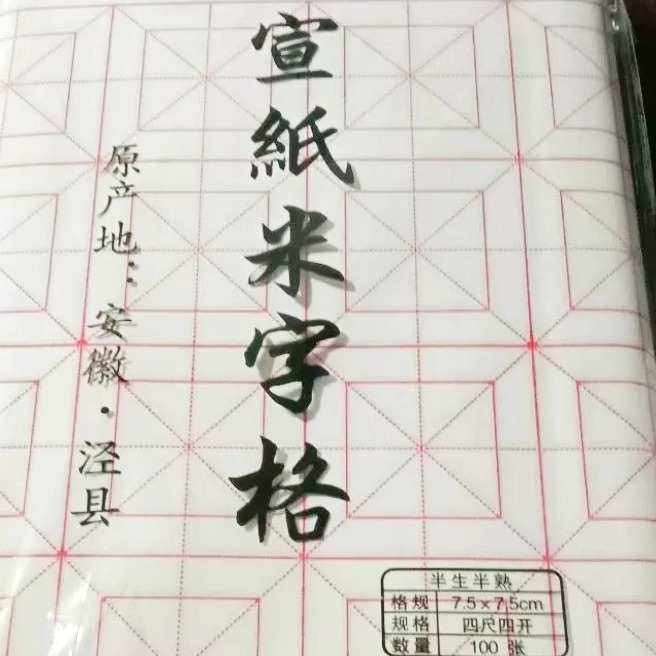 宣紙米字格
原产地：安徽·泾县
半生半熟
格规 7.5×7.5cm
规格 四尺四开
数量 100 张